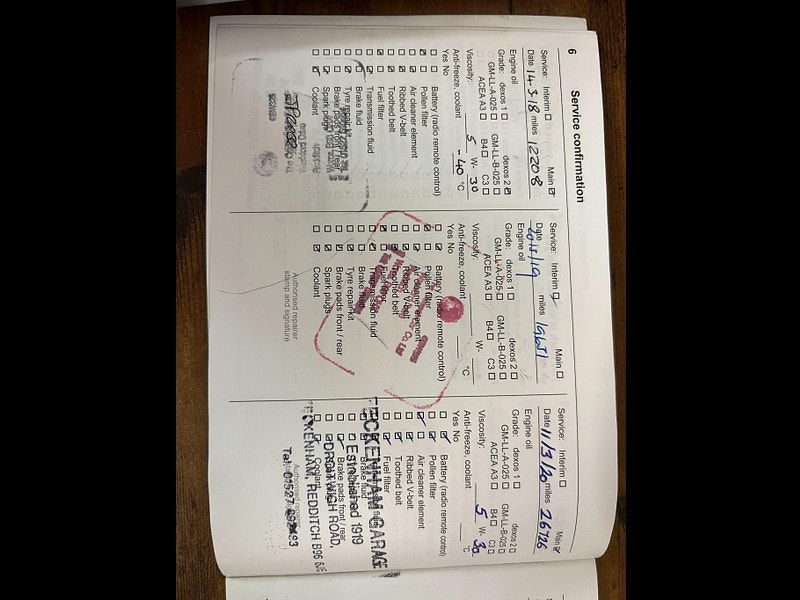 6
Service confirmation
Service: Interim Main
Date 14-3-18 miles 12208
Engine oil
Grade: dexos 1 dexos 2
GM-LL-A-025 GM-LL-B-025
ACEA A3 B4 C3
Viscosity: 5 W- 30
Anti-freeze, coolant -40 °C
Yes No
Battery (radio remote control)
Pollen filter
Air cleaner element
Ribbed V-belt
Toothed belt
Fuel filter
Transmission fluid
Brake fluid
Tyre repair kit
Brake pads front / rear
Spark plugs
Coolant
Service: Interim Main
Date miles
Engine oil
Grade: dexos 1 dexos 2
GM-LL-A-025 GM-LL-B-025
ACEA A3 B4 C3
Viscosity: W-
Anti-freeze, coolant °C
Yes No
Battery (radio remote control)
Pollen filter
Air cleaner element
Ribbed V-belt
Toothed belt
Fuel filter
Transmission fluid
Brake fluid
Tyre repair kit
Brake pads front / rear
Spark plugs
Coolant
Authorised repairer
stamp and signature
Service: Interim Main
Date 11/3/20 miles 26726
Engine oil
Grade: dexos 1 dexos 2
GM-LL-A-025 GM-LL-B-025
ACEA A3 B4 C3
Viscosity: 5 W- 30
Anti-freeze, coolant °C
Yes No
Battery (radio remote control)
Pollen filter
Air cleaner element
Ribbed V-belt
Toothed belt
Fuel filter
Brake fluid
Brake pads front / rear
Coolant
GARAGE
Established 1919
ROAD,
REDDITCH B96
Tel: 01527